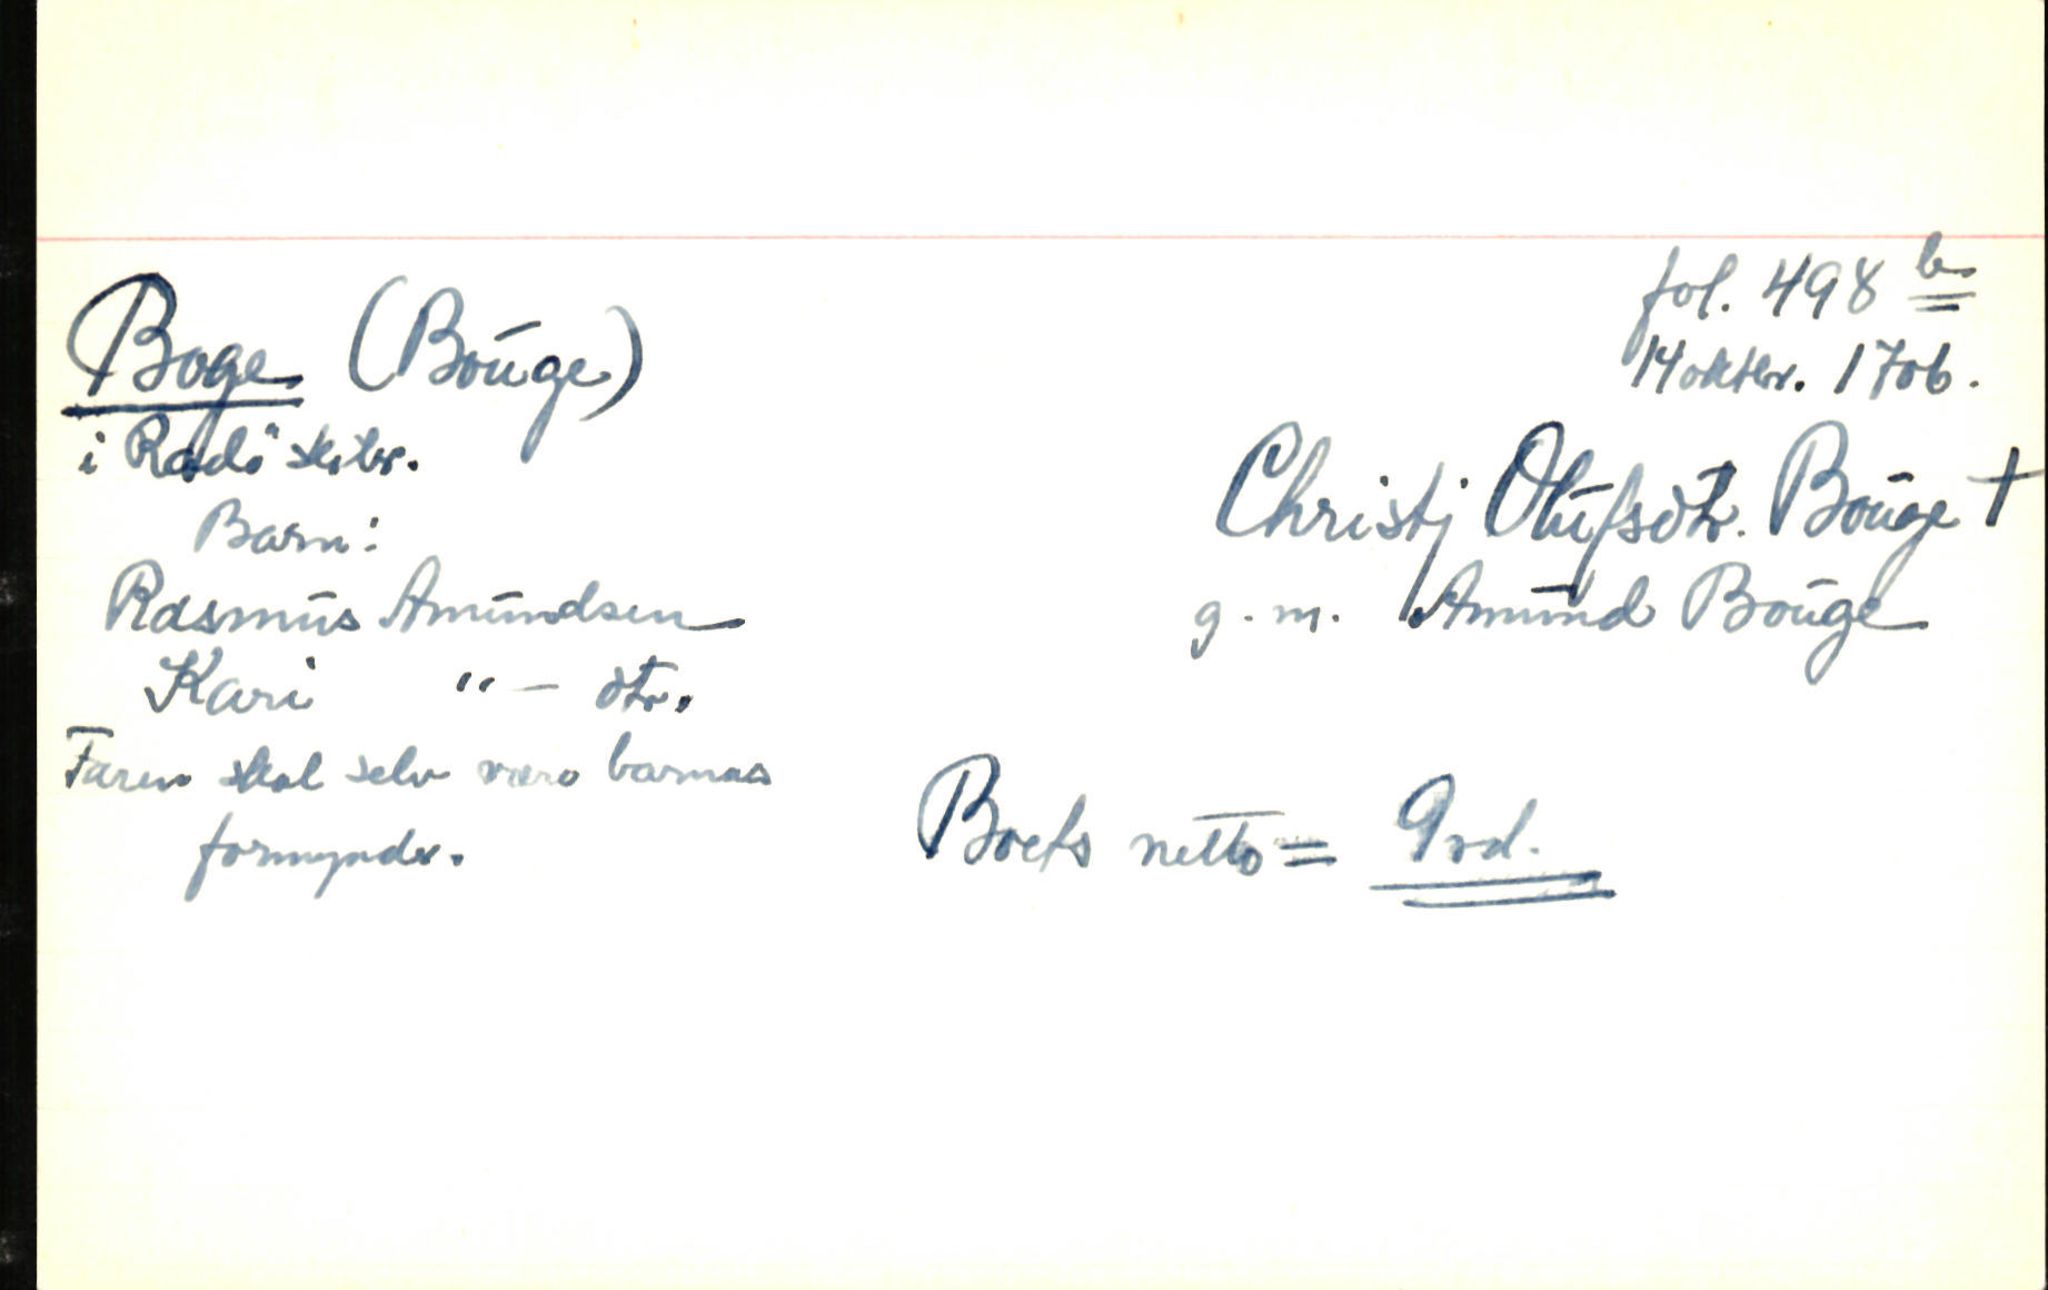 fol. 498 b
14 oktbr. 1706.
Boge (Bouge)
i Radö skibr.
Christj Olufsdtr. Bouge †
g. m. Amund Bouge
Barn:
Rasmus Amundsen
Kari " — dtr.
Faren skal selv være barnas
formynder.
Boets netto = 9 rd.